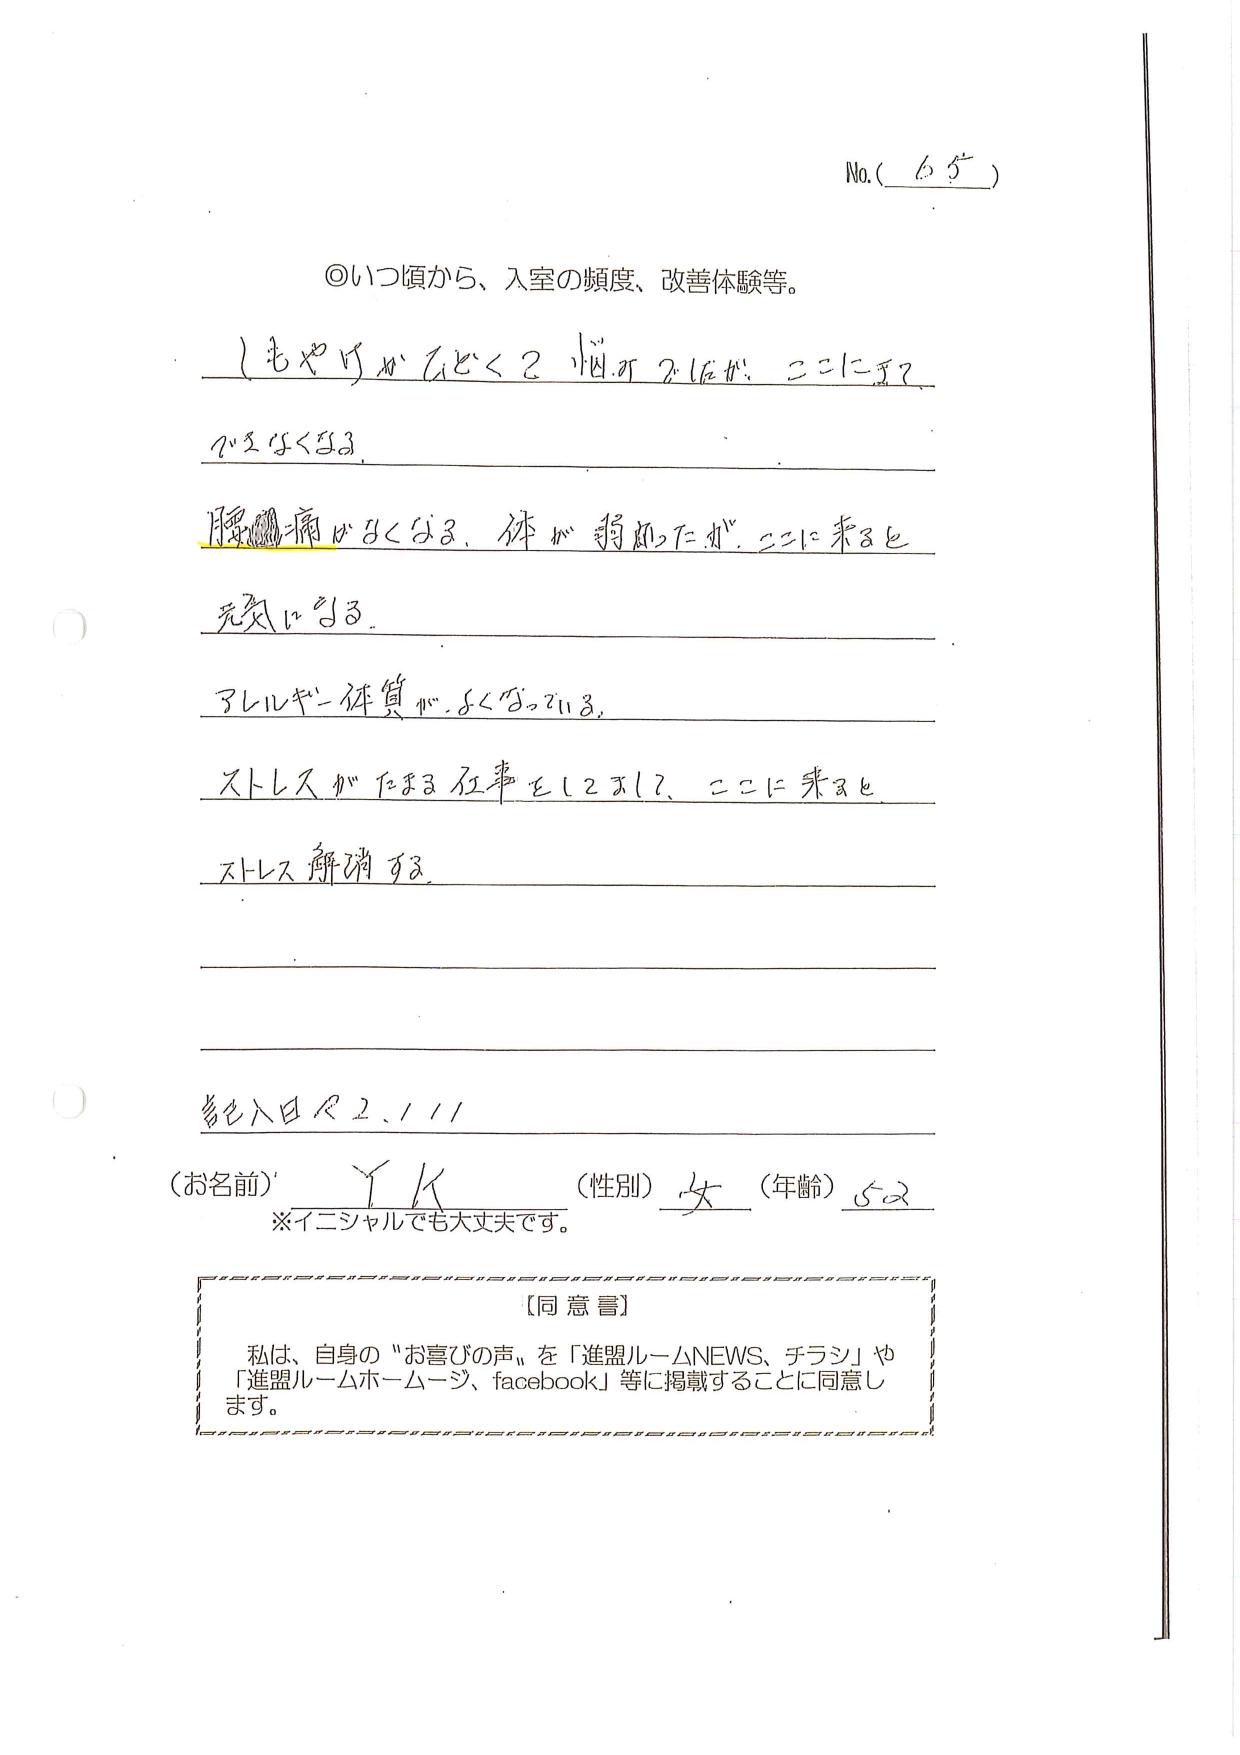 No.( 65 )
◎いつ頃から、入室の頻度、改善体験等。
しもやけがひどくて 悩みでしたが、ここにきて
できなくなる。
腰痛がなくなる、体が弱かったが、ここに来ると
元気になる。
アレルギー体質が、よくなっている。
ストレスがたまる仕事をしてまして、ここに来ると
ストレス解消する。
記入日 R2.1 11
(お名前) Y K (性別) 女 (年齢) 52
※イニシャルでも大丈夫です。
【同意書】
私は、自身の〝お喜びの声〟を「進盟ルームNEWS、チラシ」や
「進盟ルームホームージ、facebook」等に掲載することに同意し
ます。